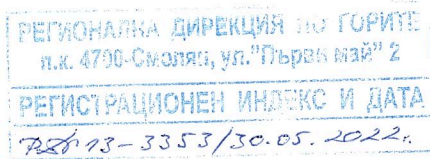 РЕГИОНАЛНА ДИРЕКЦИЯ ПО ГОРИТЕ
п.к. 4700-Смолян, ул."Първи май" 2
РЕГИСТРАЦИОНЕН ИНДЕКС И ДАТА
РДГ13-3353/30.05.2022г.